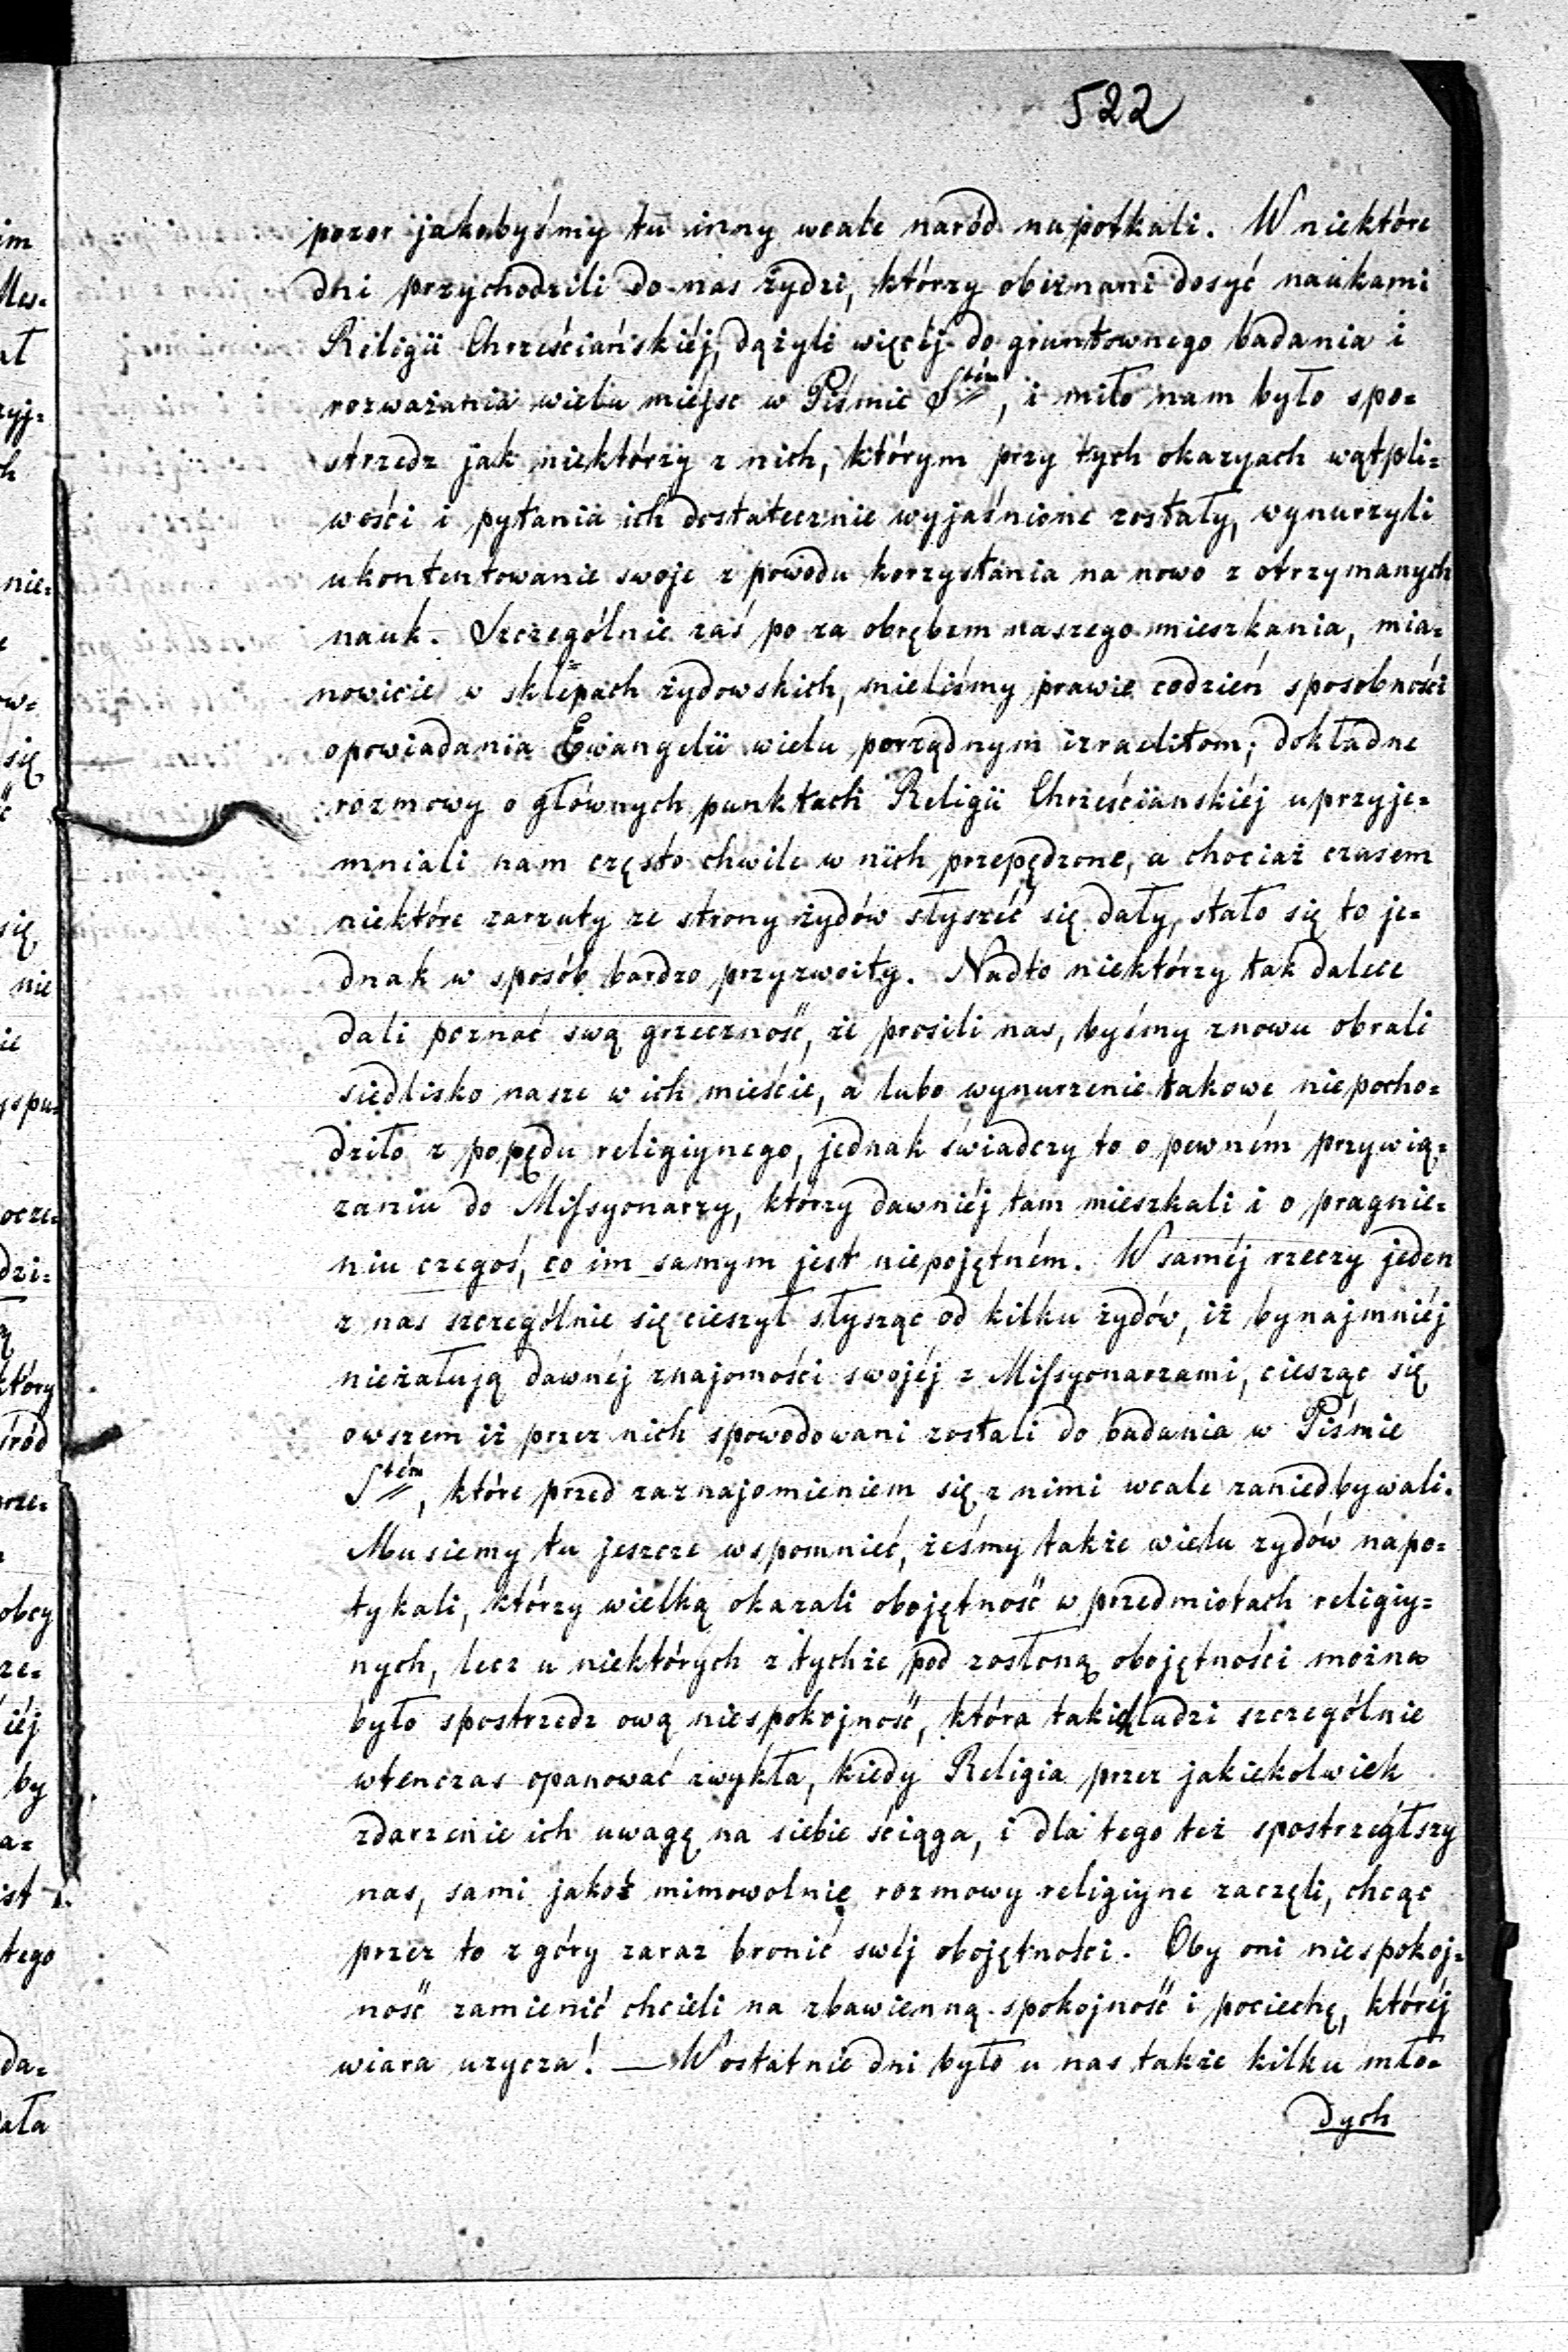 522
pozor jakobyśmy tu inny wcale naród napotkali. W niektóre
dni przychodzili do nas żydzi, którzy obeznani dosyć naukami
Religii Chrześciańskiéj, dążyli więcéj do gruntownego badania i
rozważania wielu miéjsc w Piśmie Stém, i miło nam było spo=
strzedz jak niektórzy z nich, którym przy tych okazyach wątpli=
wości i pytania ich dostatecznie wyjaśnione zostały, wynurzyli
ukontentowanie swoje z powodu korzystania na nowo z otrzymanych
nauk. Szczególnie zaś po za obrębem naszego mieszkania, mia=
nowicie w sklepach żydowskich, mieliśmy prawie codzień sposobności
opowiadania Ewangelii wielu porządnym izraelitom; dokładne
rozmowy o głównych punktach Religii Chrześciianskiéj uprzyje=
mniali nam często chwile w nich przepędzone, a chociaż czasem
niektóre zarzuty ze strony żydów słyszéć się dały, stało się to je=
dnak w sposób bardzo przyzwoity. Nadto niektórzy tak dalece
dali poznać swą grzeczność, że prosili nas, byśmy znowu obrali
siedlisko nasze w ich mieście, a lubo wynurzenie takowe niepocho=
dziło z popędu religiynego, jednak świadczy to o pewném przywią=
zaniu do Missyonarzy, którzy dawniéj tam mieszkali i o pragnie=
niu czegoś, co im samym jest niepojętném. W saméj rzeczy jeden
z nas szczególnie się cieszył słysząc od kilku żydów, iż bynajmniéj
nieżałują dawnéj znajomości swojéj z Missyonarzami, ciesząc się
owszem iż przez nich spowodowani zostali do badania w Piśmie
Stém, które przed zaznajomieniem się z nimi wcale zaniedbywali.
Musiemy tu jeszcze wspomnieć, żeśmy także wielu żydów napo=
tykali, którzy wielką okazali obojętność w przedmiotach religiy=
nych, lecz u niektórych z tychże pod zosłoną obojętności można
było spostrzedz ową niespokojność, która takich ludzi szczególnie
wtenczas opanować zwykła, kiedy Religia przez jakiekolwiek
zdarzenie ich uwagę na siebie ściąga, i dla tego też spostrzegłszy
nas, sami jakoś mimowolnie rozmowy religiyne zaczęli, chcąc
przez to z góry zaraz bronić swéj obojętności. Oby oni niespokoj=
ność zamienić chcieli na zbawienną spokojność i pociechę, któréj
wiara uzycza! — W ostatnie dni było u nas także kilku mło=
dych